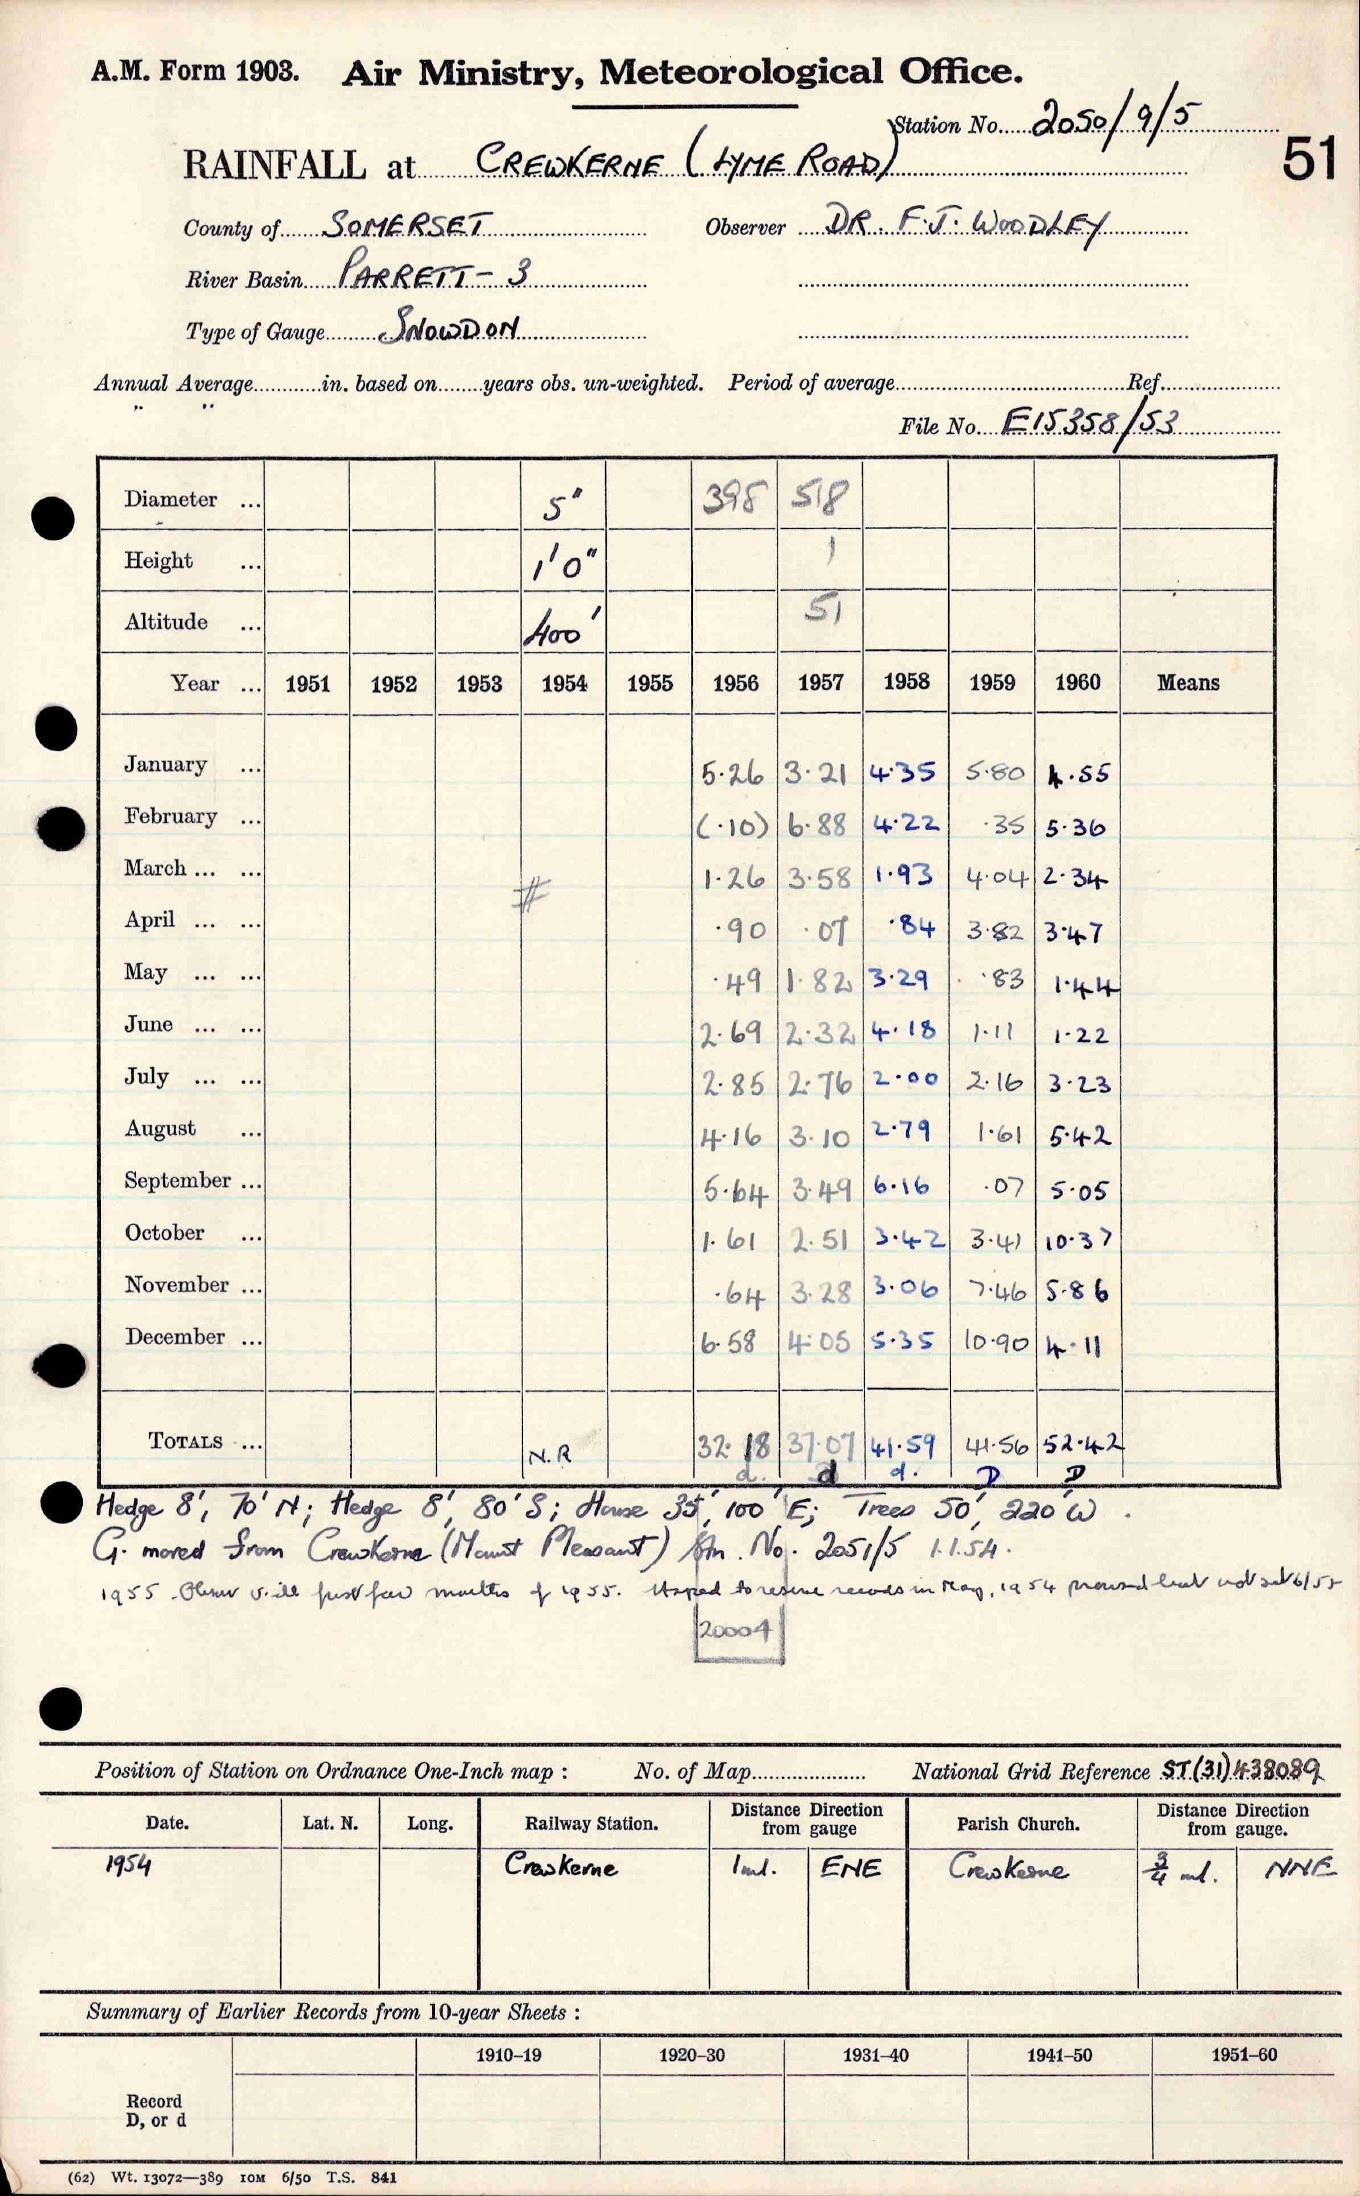 A.M. Form 1903. Air Ministry, Meteorological Office.
Station No. 2050/9/5
51
RAINFALL at CREWKERNE (LYME ROAD)
County of SOMERSET Observer DR. F.J. WOODLEY
River Basin PARRETT - 3
Type of Gauge SNOWDON
Annual Average in. based on years obs. un-weighted. Period of average Ref.
" "
File No. E15358/53
Diameter ... 5" 398 518
Height ... 1'0" 1
Altitude ... 400' 51
Year ... 1951 1952 1953 1954 1955 1956 1957 1958 1959 1960 Means
January ... 5.26 3.21 4.35 5.80 4.55
February ... (.10) 6.88 4.22 .35 5.36
March ... ... 1.26 3.58 1.93 4.04 2.34
#
April ... ... .90 .07 .84 3.82 3.47
May ... ... .49 1.82 3.29 .83 1.44
June ... ... 2.69 2.32 4.18 1.11 1.22
July ... ... 2.85 2.76 2.00 2.16 3.23
August ... 4.16 3.10 2.79 1.61 5.42
September ... 5.64 3.49 6.16 .07 5.05
October ... 1.61 2.51 3.42 3.41 10.37
November ... .64 3.28 3.06 7.46 5.86
December ... 6.58 4.05 5.35 10.90 4.11
TOTALS ... N.R 32.18 37.07 41.59 41.56 52.42
d. d d. D D
Hedge 8', 70' N; Hedge 8', 80' S; House 35', 100' E; Trees 50', 220' W.
G. moved from Crewkerne (Mount Pleasant) Stn. No. 2051/5 1.1.54.
1955 v. ill first few months of 1955. to records in May, 1954 promised but not 6/55
20004
Position of Station on Ordnance One-Inch map : No. of Map National Grid Reference ST(31)438089
Date. Lat. N. Long. Railway Station. Distance Direction from gauge Parish Church. Distance Direction from gauge.
1954 Crewkerne 1 ml. ENE Crewkerne 3/4 ml. NNE
Summary of Earlier Records from 10-year Sheets :
1910–19 1920–30 1931–40 1941–50 1951–60
Record
D, or d
(62) Wt. 13072—389 10M 6/50 T.S. 841